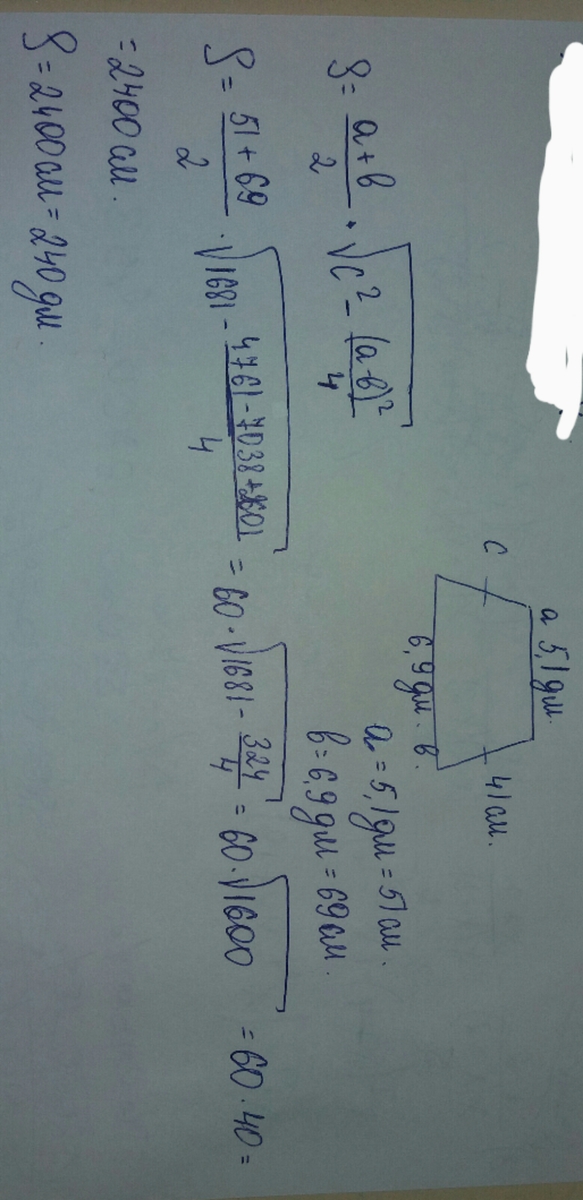 a 5,1 дм.
c
41 см.
6,9 дм. в.
a = 5,1 дм = 51 см.
в = 6,9 дм = 69 см.
S = a + в / 2 · √c² - (a-в)² / 4
S = 51 + 69 / 2 · √1681 - 4761 - 7038 + 2601 / 4 = 60 · √1681 - 324 / 4 = 60 · √1600 = 60 · 40 =
= 2400 см.
S = 2400 см = 240 дм.